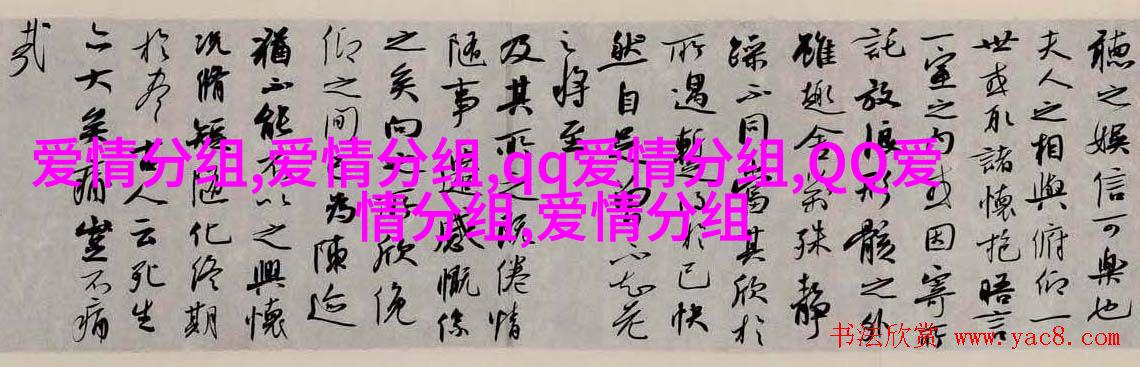 聽之娛信可樂也
夫人之相與俯仰一
世或取諸懷抱晤言
一室之內或因寄所
託放浪形骸之外
雖趣舍萬殊靜
躁不同當其欣於
所遇暫得於己快
然自足不知老
之將至
及其所之既倦情
隨事遷感慨係
之矣向之所欣俛
仰之間為陳迹
猶不能不以之興懷
況脩短隨化終期
於盡古人云死生
亦大矣豈不痛
哉
爱情分组,爱情分组,qq爱情分组,QQ爱
情分组,爱情分组
书法欣赏 www.yac8.com